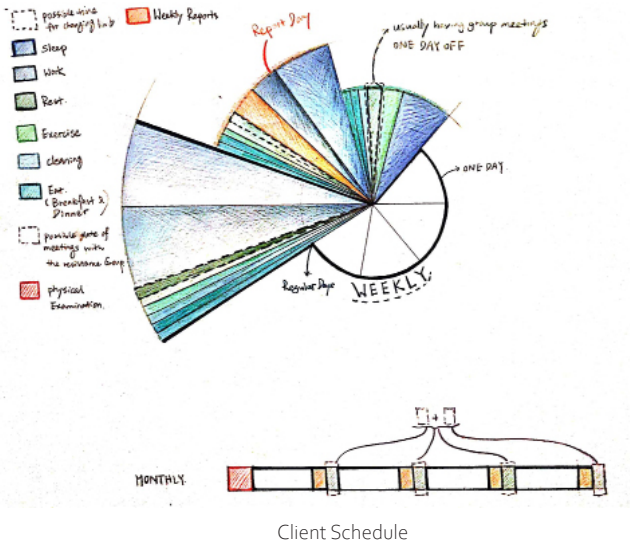 possible time
for changing limb
Weekly Reports
Sleep
Work
Rest.
Exercise
cleaning
Eat.
(Breakfast &
Dinner)
possible date of
meetings with
the resistance Group
physical
Examination.
Report Day
usually having group meetings
ONE DAY OFF
ONE DAY
Regular Days
WEEKLY
+
MONTHLY.
Client Schedule